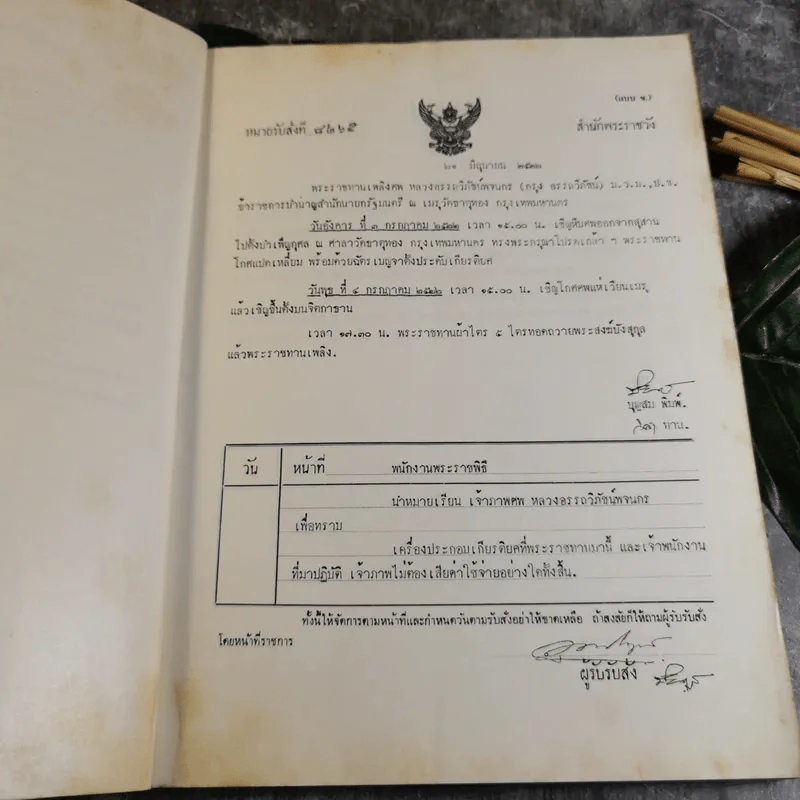 (แบบ ข.)
หมายรับสั่งที่ ๘๒๖๕
สำนักพระราชวัง
๒๑ มิถุนายน ๒๕๒๒
พระราชทานเพลิงศพ หลวงอรรถวิภัชน์พจนกร (กรุง อรรถวิภัชน์) ม.ว.ม.,ป.ช.
ข้าราชการบำนาญสำนักนายกรัฐมนตรี ณ เมรุวัดธาตุทอง กรุงเทพมหานคร
วันอังคาร ที่ ๓ กรกฎาคม ๒๕๒๒ เวลา ๑๕.๐๐ น. เชิญหีบศพออกจากสุสาน
ไปตั้งบำเพ็ญกุศล ณ ศาลาวัดธาตุทอง กรุงเทพมหานคร ทรงพระกรุณาโปรดเกล้า ฯ พระราชทาน
โกศแปดเหลี่ยม พร้อมด้วยฉัตรเบญจาตั้งประดับเกียรติยศ
วันพุธ ที่ ๔ กรกฎาคม ๒๕๒๒ เวลา ๑๕.๐๐ น. เชิญโกศศพแห่เวียนเมรุ
แล้วเชิญขึ้นตั้งบนจิตกาธาน
เวลา ๑๗.๓๐ น. พระราชทานผ้าไตร ๕ ไตรทอดถวายพระสงฆ์บังสุกุล
แล้วพระราชทานเพลิง.
บุญสม พิมพ์.
ทาน.
วัน หน้าที่ พนักงานพระราชพิธี
นำหมายเรียน เจ้าภาพศพ หลวงอรรถวิภัชน์พจนกร
เพื่อทราบ
เครื่องประกอบเกียรติยศที่พระราชทานมานี้ และเจ้าพนักงาน
ที่มาปฏิบัติ เจ้าภาพไม่ต้องเสียค่าใช้จ่ายอย่างใดทั้งสิ้น.
ทั้งนี้ให้จัดการตามหน้าที่และกำหนดวันตามรับสั่งอย่าให้ขาดเหลือ ถ้าสงสัยก็ให้ถามผู้รับรับสั่ง
โดยหน้าที่ราชการ
ผู้รับรับสั่ง